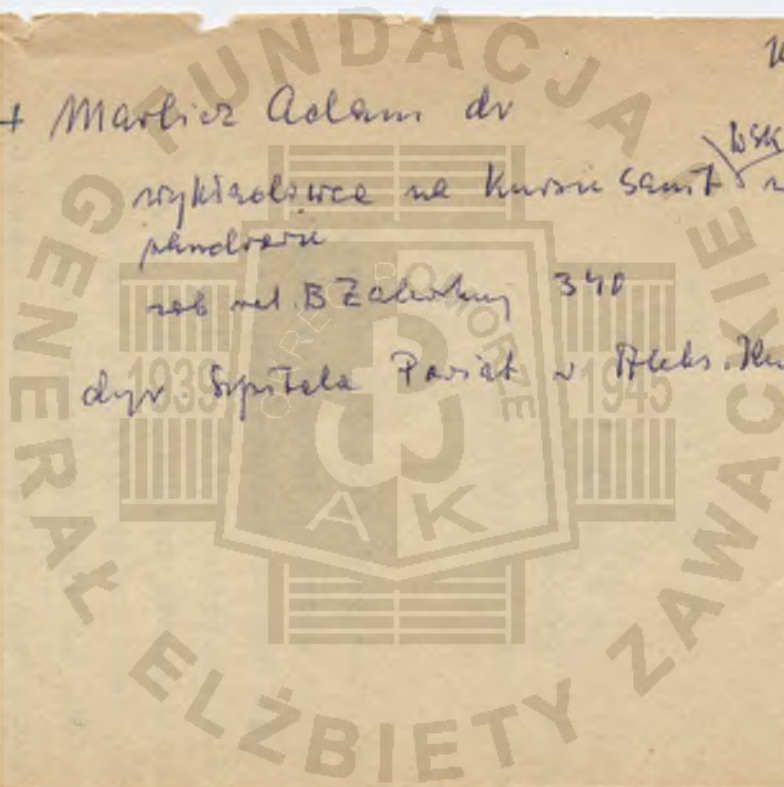 + Marlicz Adam dr
WSK
wykładowca na kursie sanit
zob rel. B Zakolny 340
dyr. Szpitala Powiat w Aleks. Ku
FUNDACJA
GENERAŁ ELŻBIETY ZAWACKIEJ
OKRĘG POMORZE
1939 1945
AK